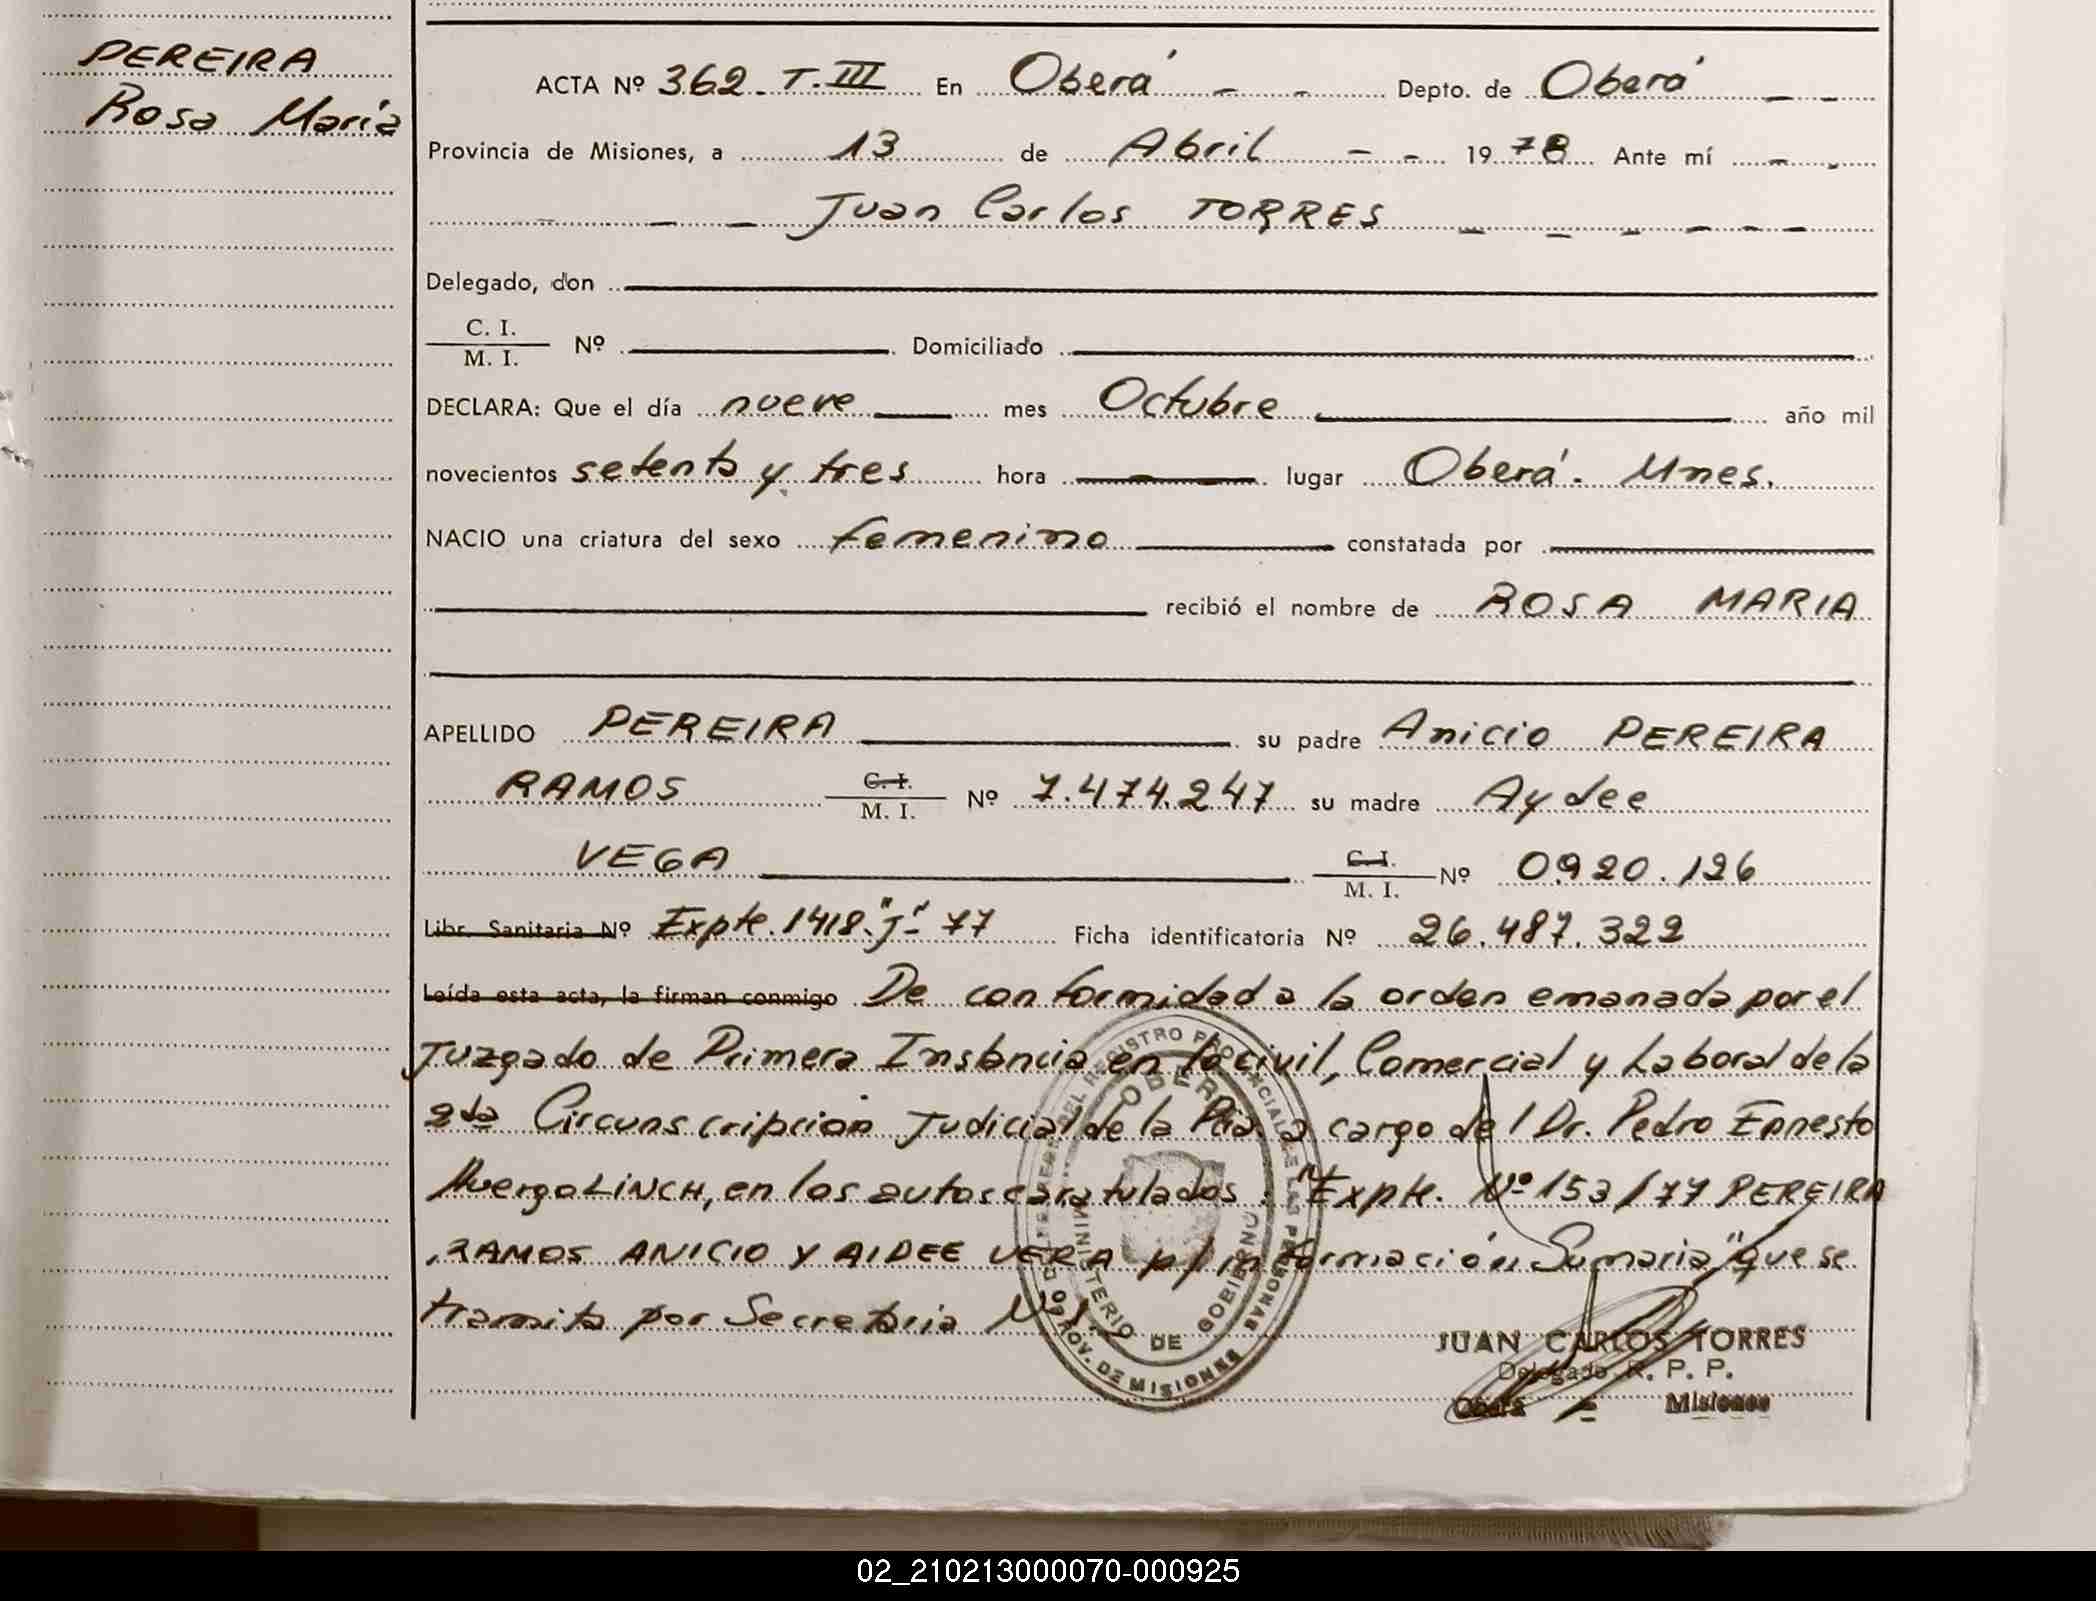 PEREIRA
Rosa María
ACTA Nº 362. T.III En Oberá - - Depto. de Oberá - -
Provincia de Misiones, a 13 de Abril - - 1978 Ante mí - -
Juan Carlos TORRES
Delegado, don
C. I.
M. I. Nº Domiciliado
DECLARA: Que el día nueve mes Octubre año mil
novecientos setenta y tres hora lugar Oberá. Mnes.
NACIO una criatura del sexo femenino constatada por
recibió el nombre de ROSA MARIA
APELLIDO PEREIRA su padre Anicio PEREIRA
RAMOS C. I. M. I. Nº 7.474.247 su madre Aydee
VEGA C. I. M. I. Nº 0920.126
Libr. Sanitaria Nº Expte. 1418."J"- 77 Ficha identificatoria Nº 26.487.322
Leída esta acta, la firman conmigo De conformidad a la orden emanada por el
Juzgado de Primera Instancia en lo civil, Comercial y Laboral de la
2da Circunscripción Judicial de la Pcia. a cargo del Dr. Pedro Ernesto
LINCH, en los autos caratulados: "Expte. Nº 153/77 PEREIRA
RAMOS ANICIO Y AIDEE VERA p/ información Sumaria" que se
tramita por Secretaria Nº 1.
DEL REGISTRO PROVINCIAL DE LAS PERSONAS
OBERA
MINISTERIO DE GOBIERNO
PROV. DE MISIONES
JUAN CARLOS TORRES
Delegado R. P. P.
Oberá - Misiones
02_210213000070-000925